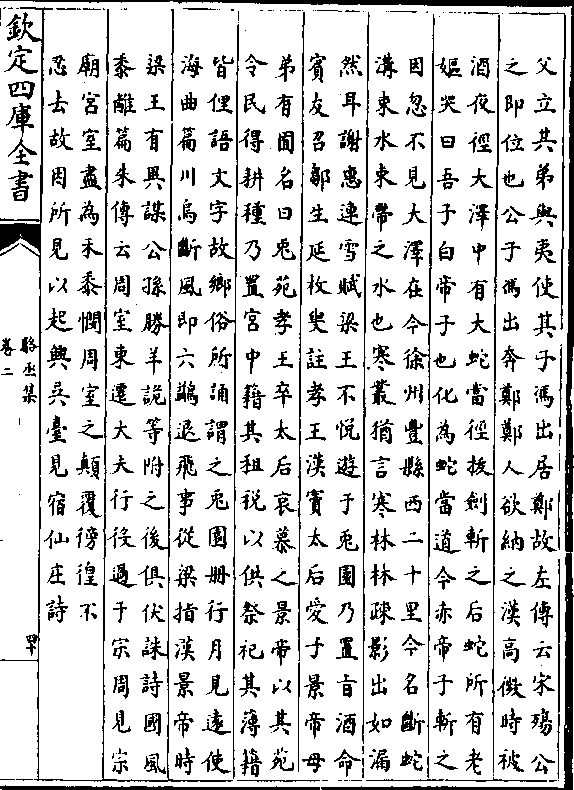 父立其弟與夷使其子馮出居鄭故左傳云宋殤公
之即位也公子馮出奔鄭鄭人欲納之漢高微時被
酒夜徑大澤中有大蛇當徑拔劍斬之后蛇所有老
嫗哭曰吾子白帝子也化為蛇當道今赤帝子斬之
因忽不見大澤在今徐州豐縣西二十里今名斷蛇
溝東水東帶之水也寒叢猶言寒林林疎影出如漏
然耳謝惠連雪賦梁王不悅遊于兔園乃置旨酒命
賓友召鄒生延枚叟註孝王漢竇太后愛子景帝母
弟有園名曰兔苑孝王卒太后哀慕之景帝以其苑
令民得耕種乃置宮中籍其租税以供祭祀其薄籍
皆俚語文字故鄉俗所誦謂之兔園冊行月見遠使
海曲篇川烏斷風即六鷁退飛事從梁指漢景帝時
梁王有異謀公孫勝羊詭等附之後俱伏誅詩國風
黍離篇朱傳云周室東遷大夫行役過于宗周見宗
廟宮室盡為禾黍憫周室之顛覆徬徨不
忍去故因所見以起興吳臺見宿仙庄詩
欽定四庫全書
駱丞集
卷二